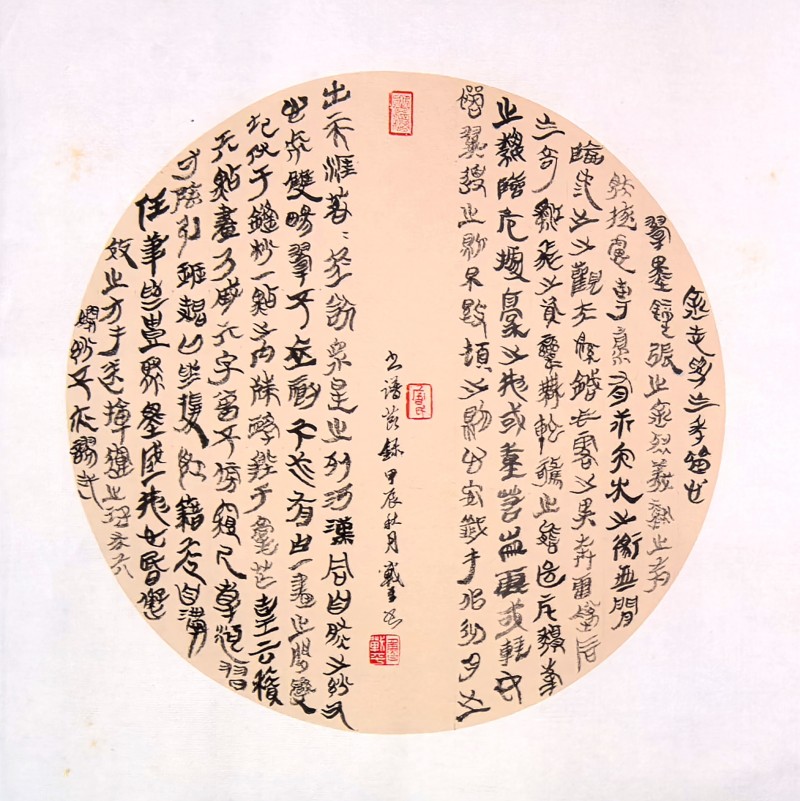 余志學之年留心
翰墨鍾張之余烈羲獻之前
規極慮專精有乖入木之術無間
臨池之志觀夫懸針垂露之異奔雷墜石
之奇鴻飛之資鸞舞蛇驚之態絕岸頹峯
之勢臨危據槁之形或重若崩雲或輕如
蟬翼導之則泉注頓之則山安纖乎似初月之
書譜節錄甲辰秋月戴
出天涯落〻乎猶眾星之列河漢同自然之妙有
心手雙暢翰不虛動下必有由一畫之間變
起伏于鋒杪一點之内殊衄挫于毫芒況云積
其點畫乃成其字曾不傍窺尺牘俯習
寸陰引班超以為援項籍而自滿
任筆為體聚墨成形心昏擬
效之方手迷揮運之理求其
妍妙不亦謬哉